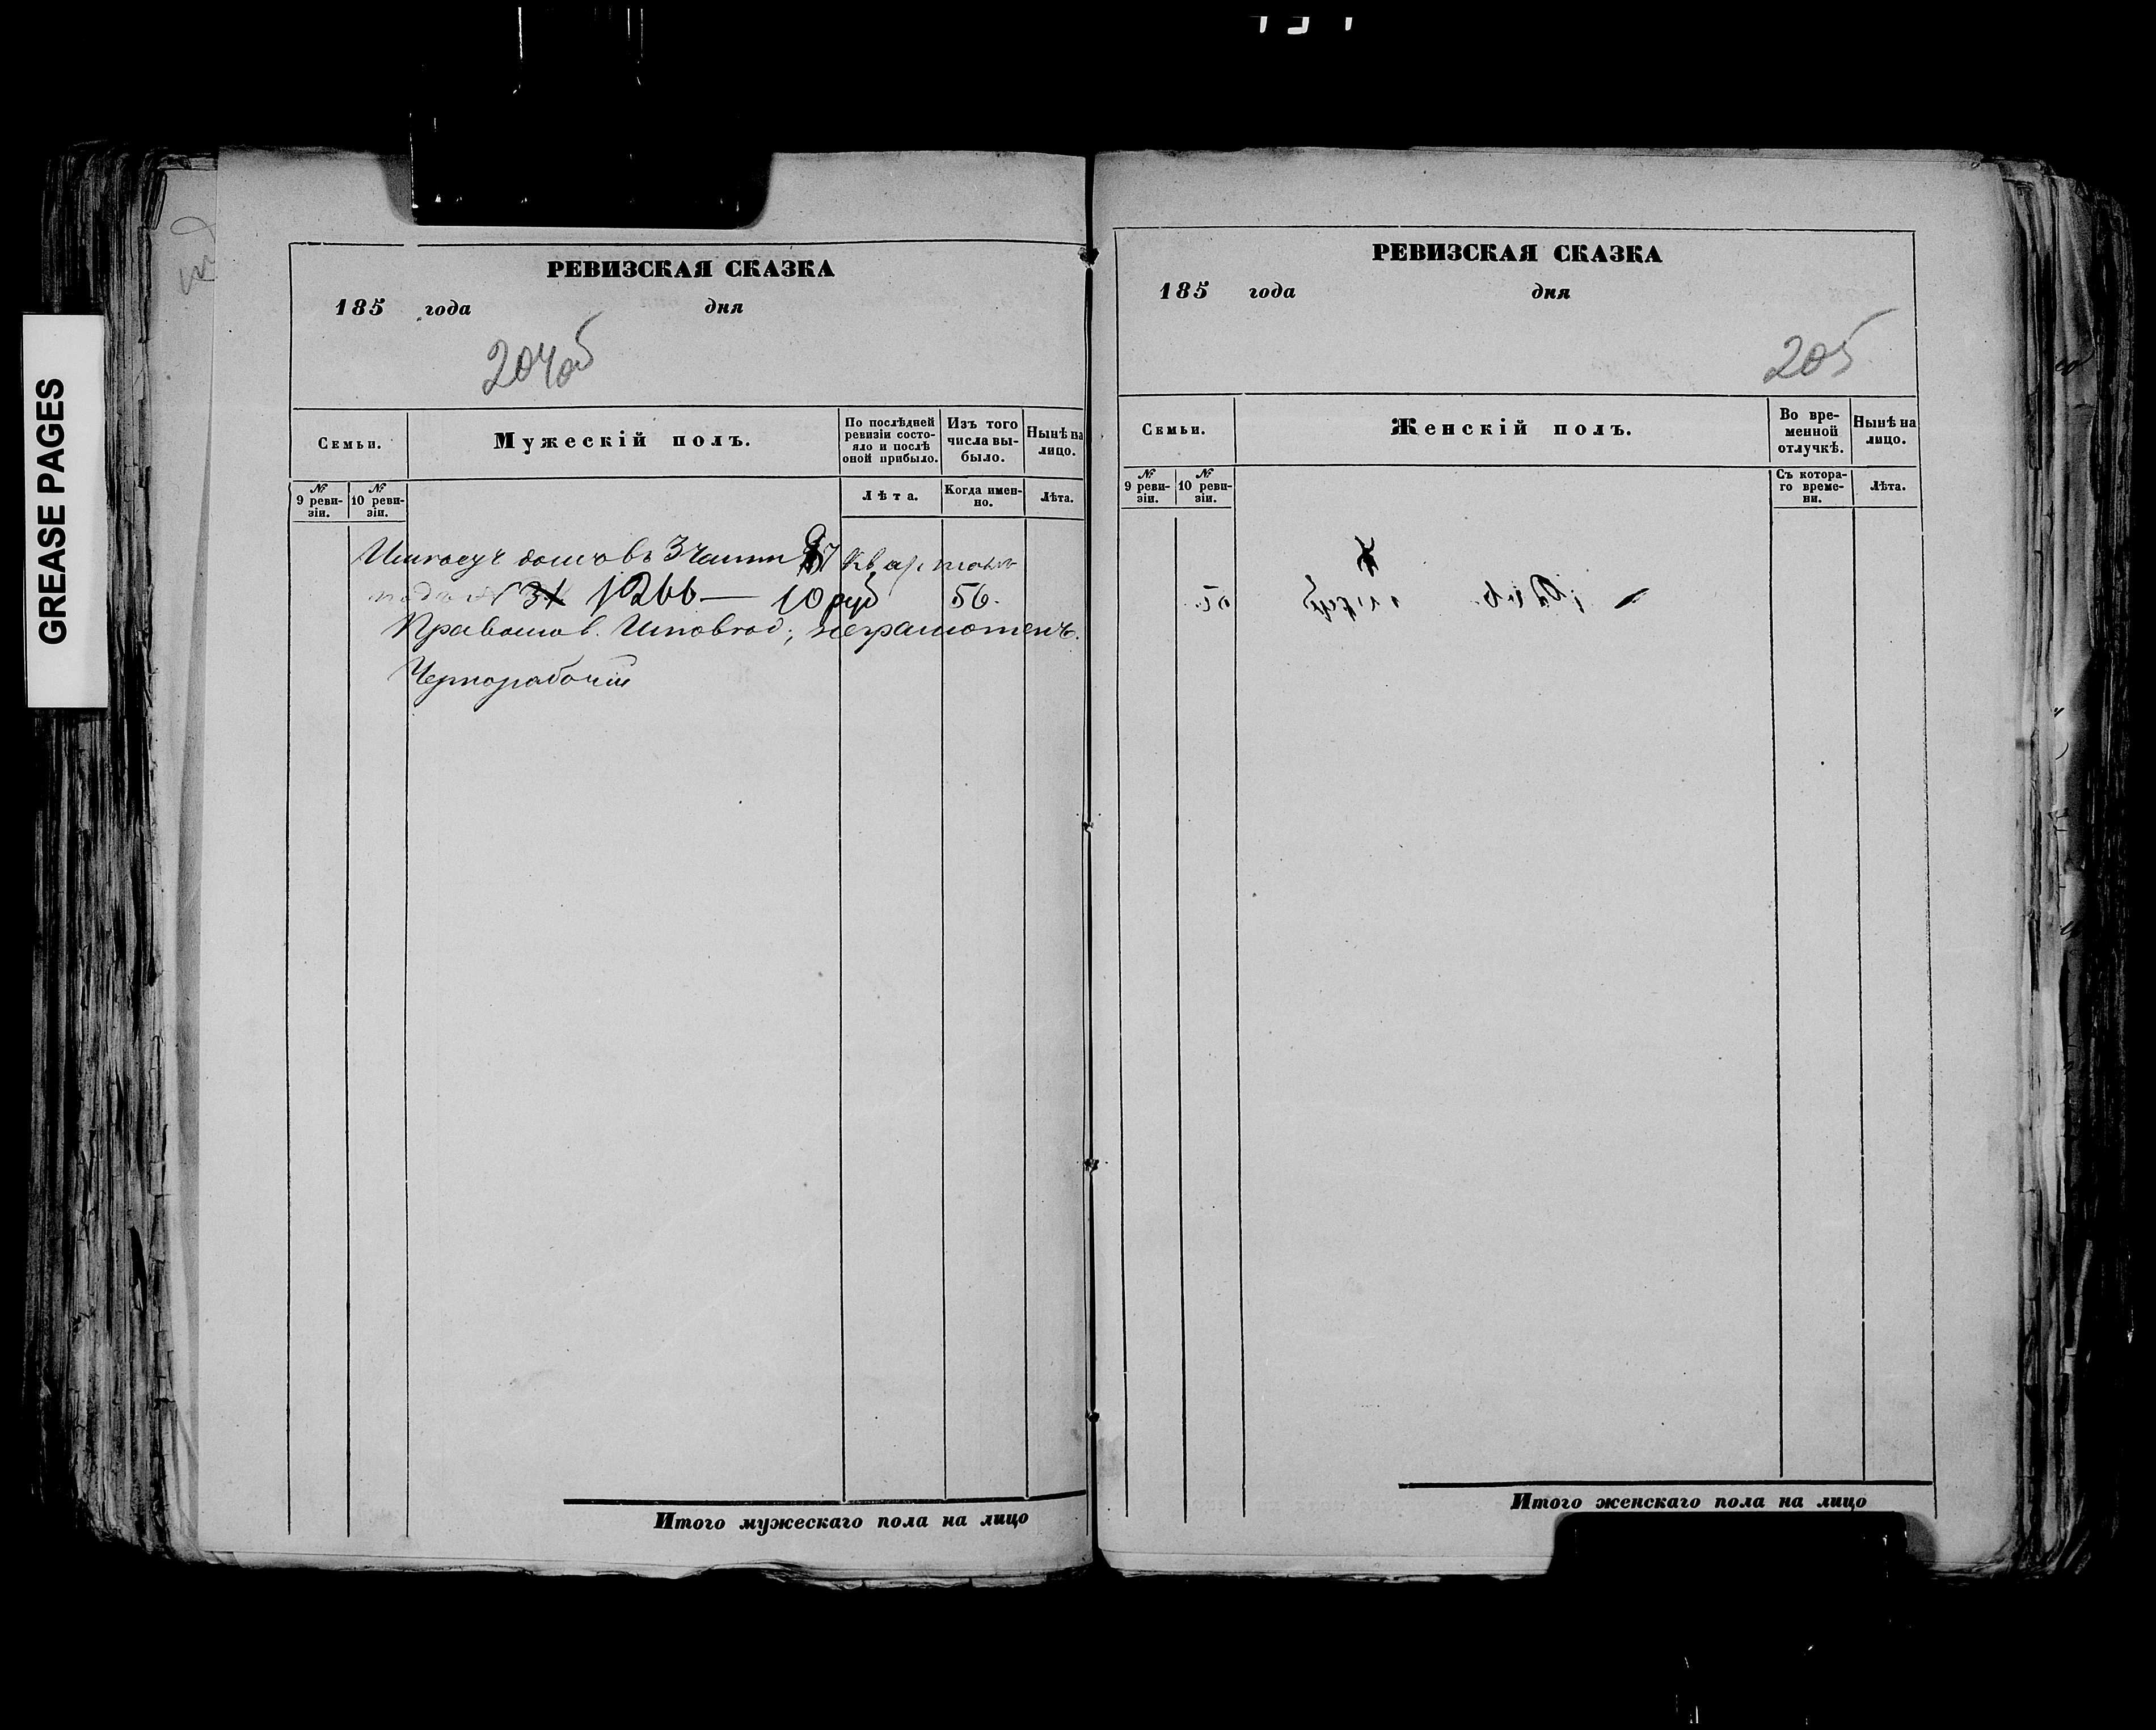 GREASE PAGES
РЕВИЗСКАЯ СКАЗКА
185 года дня
204об
Семьи. Мужескій полъ. По послѣдней ревизіи состояло и послѣ оной прибыло. Изъ того числа выбыло. Нынѣ на лицо.
№ 9 ревизіи. № 10 ревизіи. Лѣта. Когда именно. Лѣта.
домъ въ 3 части 7 Квартала
подъ № 34 1266 — 10 руб 56.
Православ. неграмотенъ.
Чернорабочій
Итого мужескаго пола на лицо
РЕВИЗСКАЯ СКАЗКА
185 года дня
205
Семьи. Женскій полъ. Во временной отлучкѣ. Нынѣ на лицо.
№ 9 ревизіи. № 10 ревизіи. Съ котораго времени. Лѣта.
Итого женскаго пола на лицо